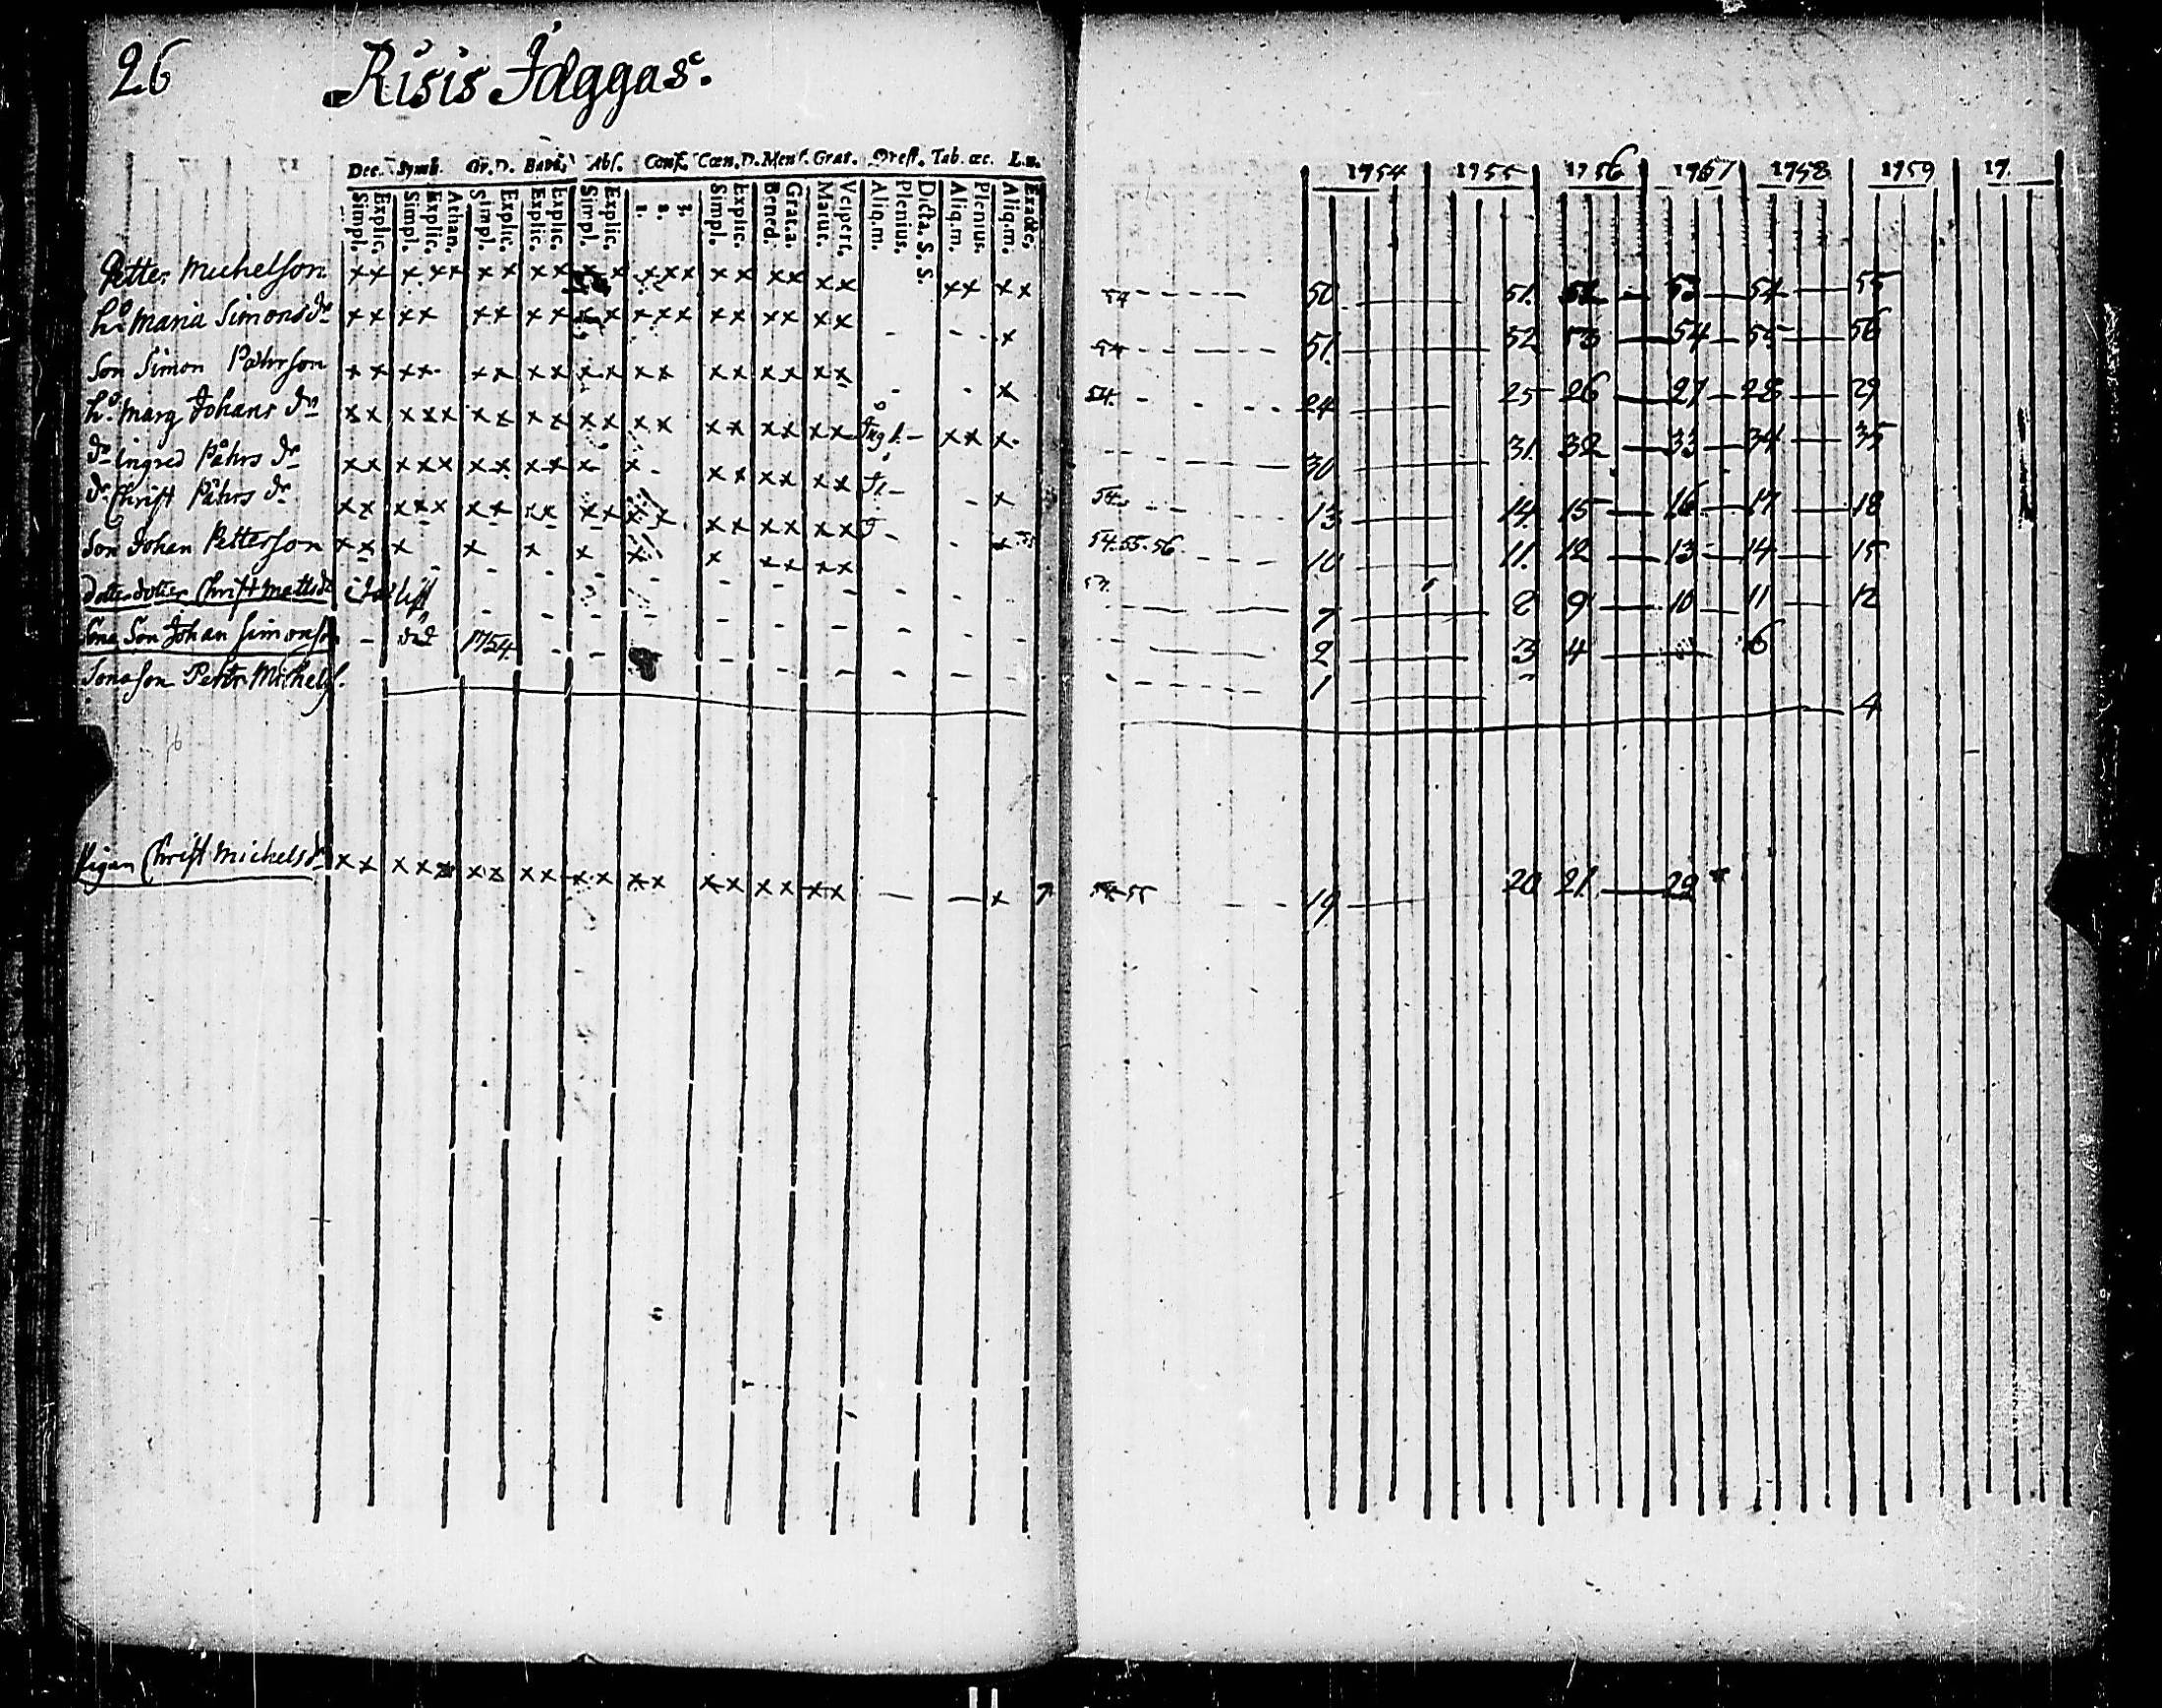 26 Risis Jäggas.
Dec. Symb. Or. D. Bapt. Abs. Conf. Cœn. D. Mens. Grat. Præst. Tab. œc. L. n.
Simpl. Explic. Simpl. Explic. Athan. Simpl. Explic. Explic. Explic. Simpl. Explic. 1. 2. 3. Simpl. Explic. Bened. Grat. a. Matut. Vespert. Aliq. m. Plenius. Dicta. S. S. Aliq. m. Plenius. Aliq. m. Exacte.
1754 1755 1756 1757 1758 1759 17.
Petter Michelson x x x x x x x x x x x x x x x x x x x x x x x x 54 50 51. 52 53 54 55
h:o Maria Simons dr x x x x x x x x x x x x x x x x x x x - - x 54 51. 52 53 54 55 56
Son Simon Påhrson x x x x x x x x x x x x x x x x x x - - x 54. 24 25 26 27 28 29
h:o Marg Johans dr x x x x x x x x x x x x x x x x x x x - x x x 30 31. 32 33 34 35
dr ingred Påhrs dr x x x x x x x x x x x x x x x x x - - x 54 13 14 15 16 17 18
dr Christ Påhrs dr x x x x x x x x x x x x x x x x x x x - - x 54. 55. 56 10 11. 12 13 14 15
Son Johan Petterson x x x x x x x x x x x x 57. 7 8 9 10 11 12
dotterdotter Christ Matts dr 2 3 4 6
Sona Son Johan Simonson - död 1754. 1
Sonason Petter Michels. 4
Pigan Christ Michels dr x x x x x x x x x x x x x x x x x x x - - x 54 55 19 20 21. 22